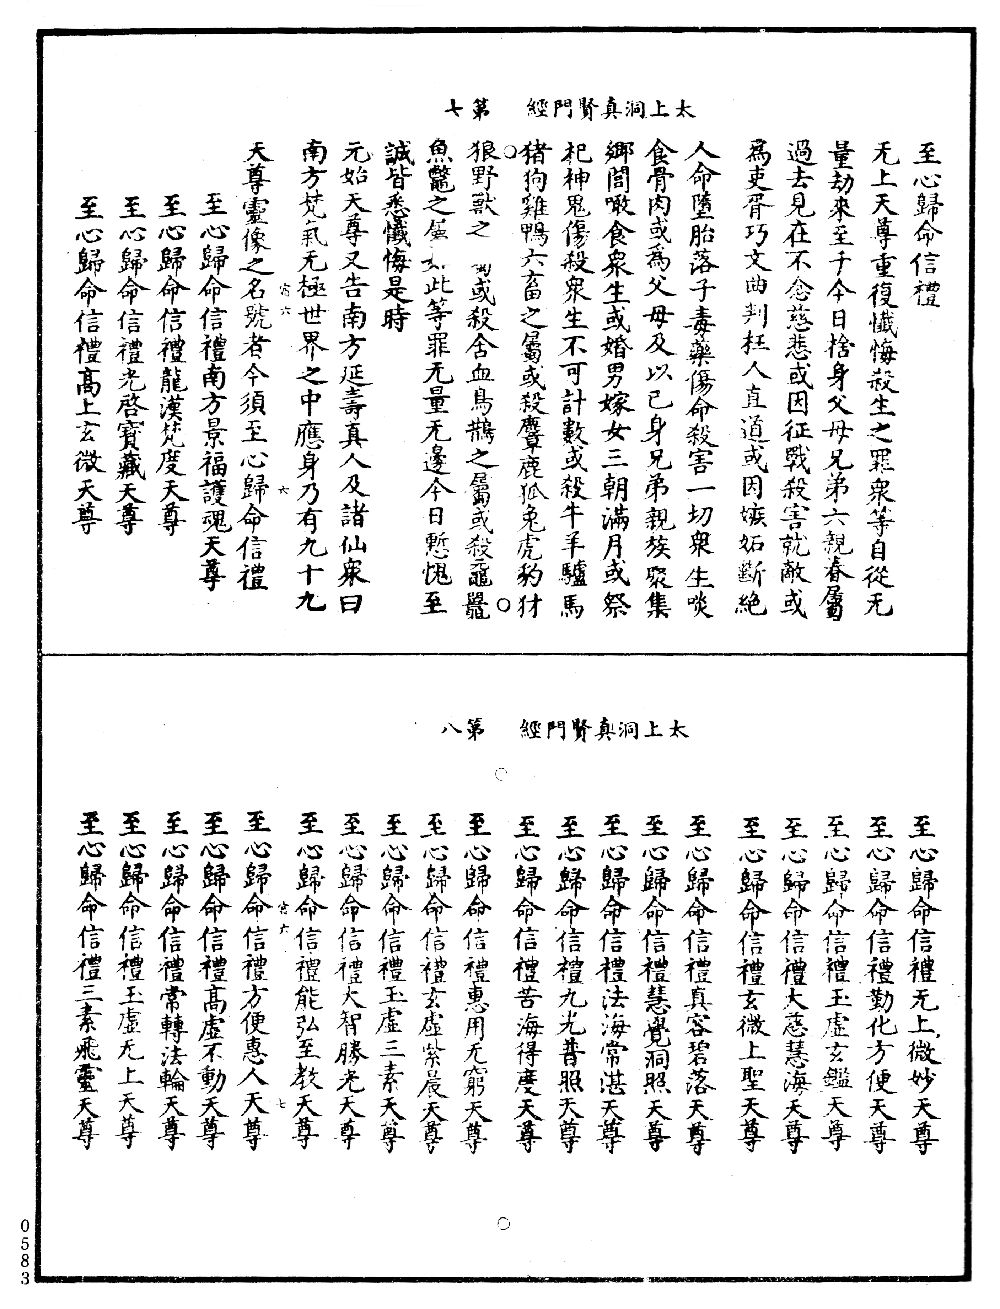 太上洞真賢門經　第七
至心歸命信禮
无上天尊重復懺悔殺生之罪衆等自從无
量劫來至于今日捨身父母兄弟六親眷屬
過去見在不念慈悲或因征戰殺害就敵或
爲吏胥巧文曲判枉人直道或因嫉妬斷絶
人命墮胎落子毒藥傷命殺害一切衆生啖
食骨肉或爲父母及以己身兄弟親族聚集
鄉閭噉食衆生或婚男嫁女三朝滿月或祭
祀神鬼傷殺衆生不可計數或殺牛羊驢馬
猪狗雞鴨六畜之屬或殺麞鹿狐兔虎豹犲
狼野獸之　或殺含血鳥鵲之屬或殺黿鼉
魚鼈之屬如此等罪无量无邊今日慙愧至
誠皆悉懺悔是時
元始天尊又告南方延壽真人及諸仙衆曰
南方梵氣无極世界之中應身乃有九十九
六
天尊靈像之名號者今須至心歸命信禮
至心歸命信禮南方景福護魂天尊
至心歸命信禮龍漢梵度天尊
至心歸命信禮光啓寶藏天尊
至心歸命信禮高上玄微天尊
太上洞真賢門經　第八
至心歸命信禮无上微妙天尊
至心歸命信禮勤化方便天尊
至心歸命信禮玉虛玄鑑天尊
至心歸命信禮大慈慧海天尊
至心歸命信禮玄微上聖天尊
至心歸命信禮真容碧落天尊
至心歸命信禮慧覺洞照天尊
至心歸命信禮法海常湛天尊
至心歸命信禮九光普照天尊
至心歸命信禮苦海得度天尊
至心歸命信禮惠用无窮天尊
至心歸命信禮玄虛紫晨天尊
至心歸命信禮玉虛三素天尊
至心歸命信禮大智勝光天尊
至心歸命信禮能弘至教天尊
七
至心歸命信禮方便惠人天尊
至心歸命信禮高虛不動天尊
至心歸命信禮常轉法輪天尊
至心歸命信禮玉虛无上天尊
至心歸命信禮三素飛靈天尊
0583